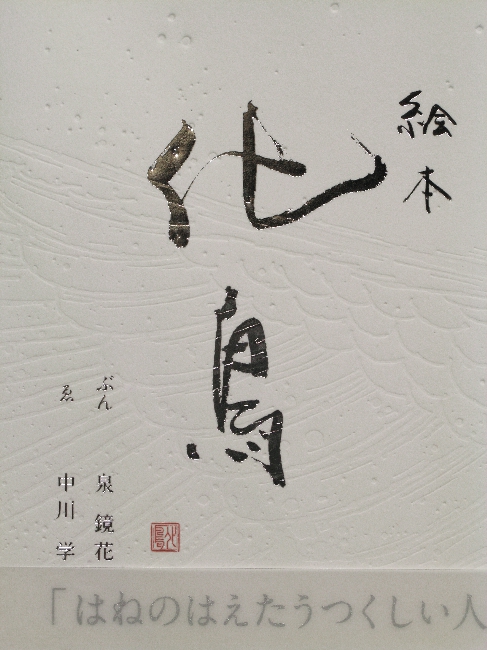 絵本
化鳥
ぶん 泉 鏡花
ゑ 中川 学
「はねのはえたうつくしい人